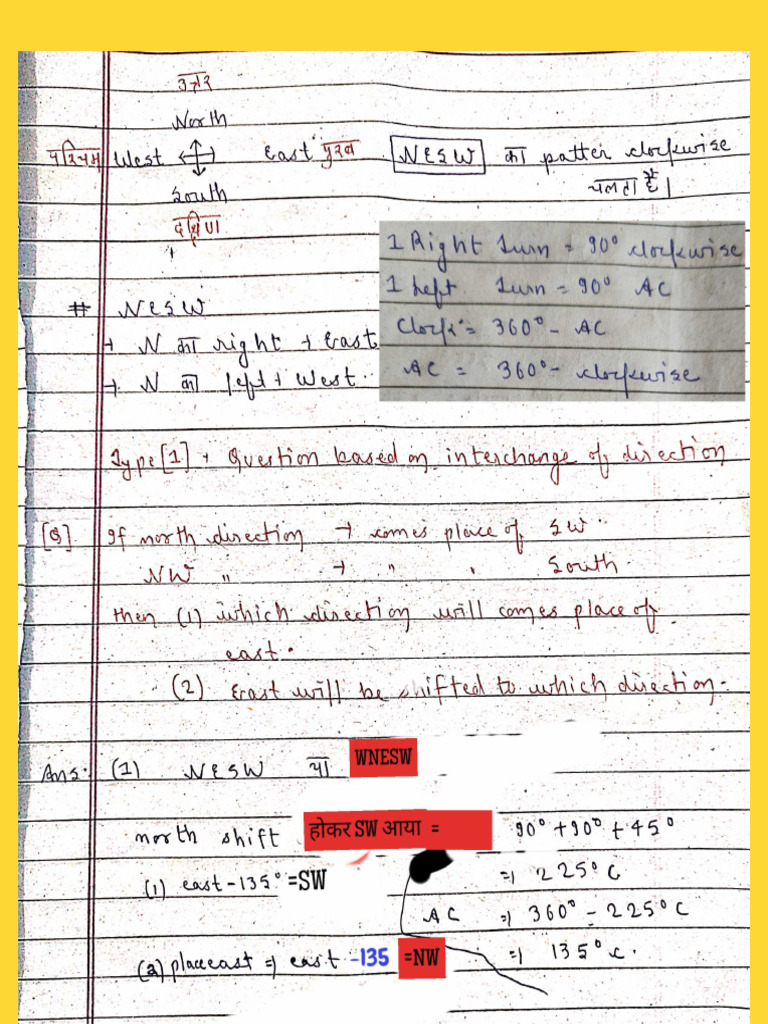 उत्तर
North
पश्चिम West East पुरब NESW का patter clockwise
South चलता है।
दक्षिण
1 Right turn = 90° clockwise
1 Left turn = 90° AC
Clock = 360° - AC
AC = 360° - clockwise
# NESW
→ N का right → East
→ N का left → West..
Type [1] → Question based on interchange of direction
[Q] If north direction → comes place of SW..
NW " → " " South.
then (1) which direction will comes place of
east.
(2) East will be shifted to which direction.
Ans: (1) NESW या WNESW
north shift होकर SW आया = 90° + 90° + 45°
(1) east - 135° =SW => 225° C
AC => 360° - 225° C
(2) place east => east -135 =NW => 135° c.